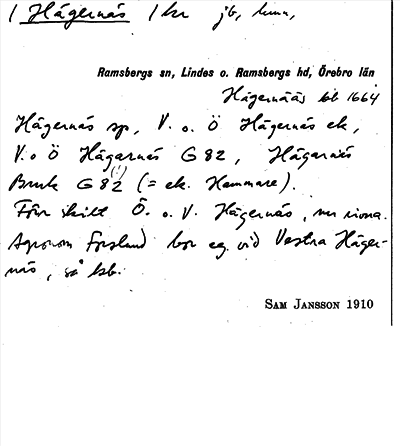 / Hägernäs / hr jb, hmn,
Ramsbergs sn, Lindes o. Ramsbergs hd, Örebro län
Hägernääs kb 1664
Hägernäs sp, V. o. Ö Hägernäs ek,
V. o Ö Hägarnäs G 82, Hägarnäs
Bruk G 82 (!) (= ek. Hammare).
Förr skilt Ö. o. V. Hägernäs, nu
Agronom Forslund bor eg. vid Vestra Häger-
näs, så kb.
SAM JANSSON 1910